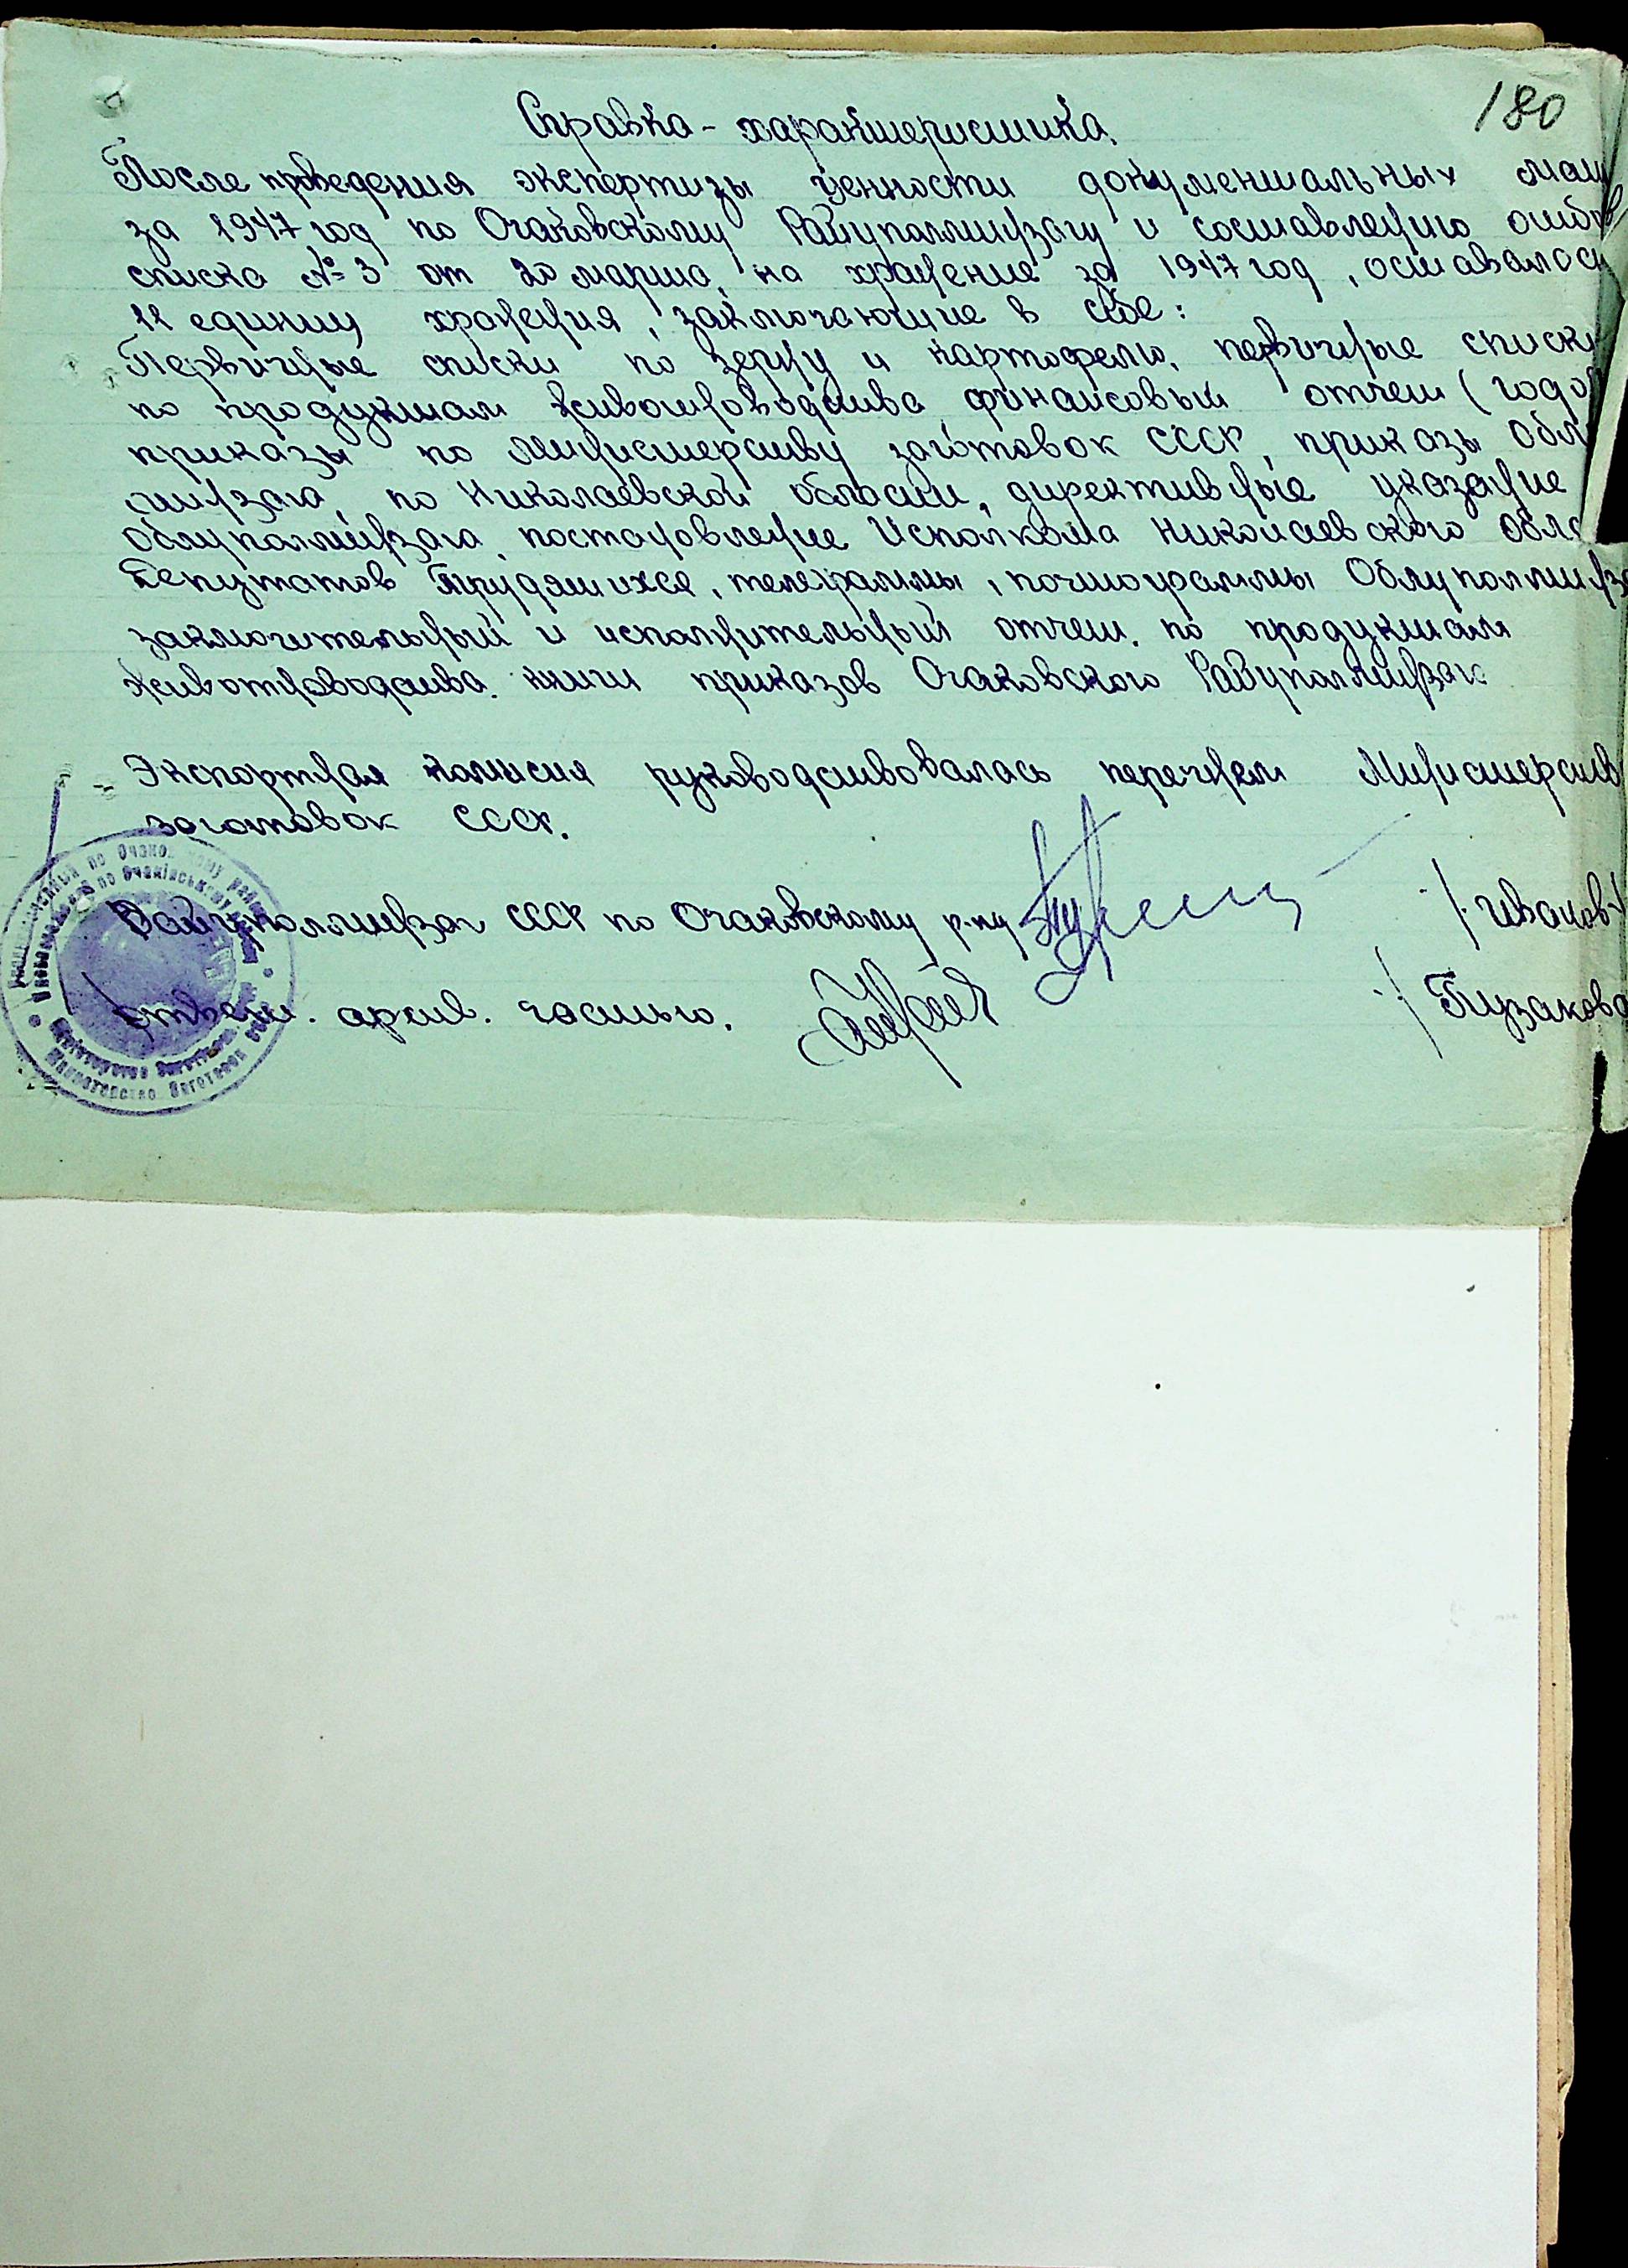 180
Справка - характеристика.
После проведения экспертизы ценности документальных мат
за 1947 год по Очаковскому Райуполминзагу и составлению отбо
списка № 3 от 20 марта, на хранение за 1947 год, оставалось
11 единиц хранения, заключающие в себе:
Первичные списки по зерну и картофелю, первичные списки
по продуктам животноводства финансовый отчет (годов
приказы по министерству заготовок СССР, приказы Обл
минзага, по Николаевской области, директивные указание
Облуполминзага, постановление Исполкома Николаевского обл
Депутатов Трудящихся, телеграммы, почтограммы Облуполминза
заключительный и исполнительный отчет. по продуктам
животноводства. книги приказов Очаковского Райуполминзага
Экспортная комисия руководствовалась перечнем Министерств
заготовок СССР.
Райуполминзаг СССР по Очаковскому р-ну /Иванов/
ответ. архив. частью. /Бузакова
по Очаковскому райо
по Очаківському
Міністерство Заготівель
Министерство Заготовок